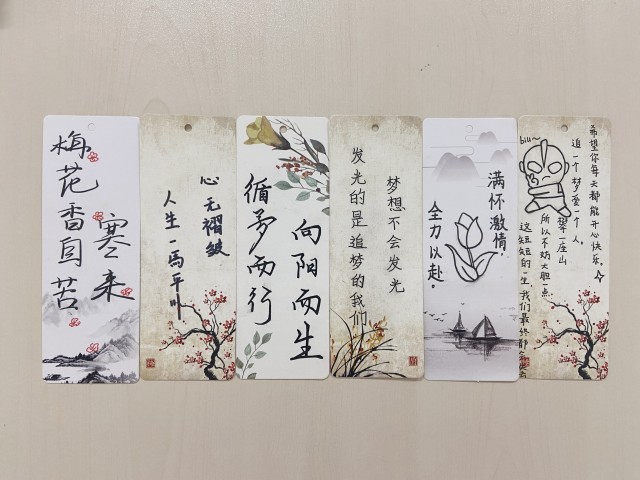 梅花香自苦
寒来
心无褶皱
人生一馬平川
循梦而行
向阳而生
梦想不会发光
发光的是追梦的我们
满怀激情，
全力以赴。
biu~
希望你每天都能开心快乐。
这短短的一生我们最终都会失去
所以不妨大胆一点
攀一座山
追一个梦爱一个人，